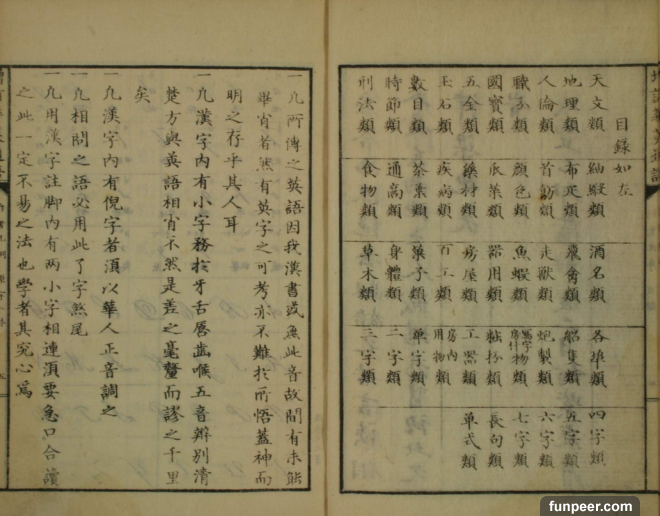 目錄如左
天文類 紬緞類 酒名類 各埠類 四字類
地理類 布疋類 飛禽類 船隻類 五字類
人倫類 首飾類 走獸類 炮製類 六字類
職分類 顏色類 魚蝦類 物類 七字類
國寶類 瓜菜類 器用類 粧扮類 長句類
五金類 藥材類 房屋類 工器類 單式類
玉石類 疾病類 百工類 房內用物類
數目類 茶葉類 菓子類 單字類
時節類 通商類 身體類 二字類
刑法類 食物類 草木類 三字類
一凡所傳之英語因我漢書或無此音故間有未能
畢肖者然有英字之可考亦不難於所悟蓋神而
明之存乎其人耳
一凡漢字內有小字務於牙舌唇齒喉五音辨別清
楚方與英語相肖不然是差之毫釐而謬之千里
矣
一凡漢字內有倪字者須以華人正音調之
一凡相問之語必用此了字煞尾
一凡用漢字註脚內有兩小字相連須要急口合讀
之此一定不易之法也學者其究心焉
funpeer.com